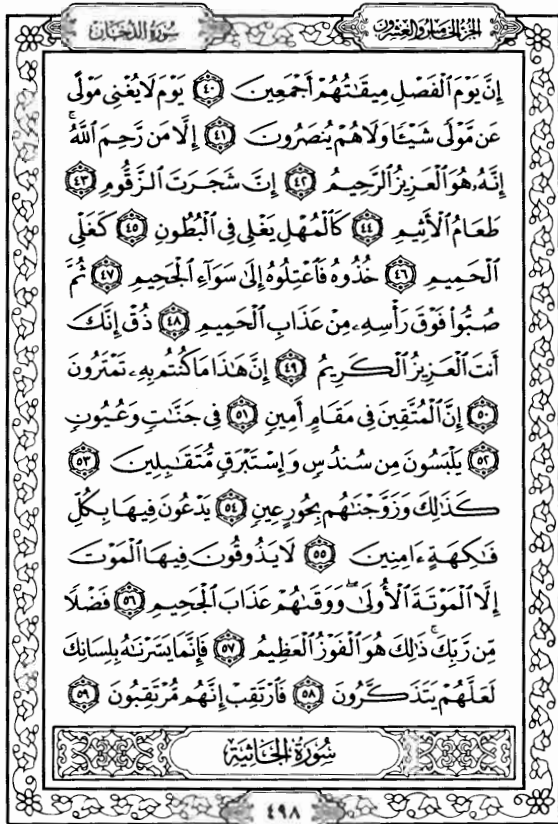 الجزء الخامس والعشرون
سورة الدخان
إِنَّ يَوْمَ الْفَصْلِ مِيقَاتُهُمْ أَجْمَعِينَ ٤٠ يَوْمَ لَا يُغْنِي مَوْلًى
عَن مَّوْلًى شَيْئًا وَلَا هُمْ يُنصَرُونَ ٤١ إِلَّا مَن رَّحِمَ اللَّهُ
إِنَّهُ هُوَ الْعَزِيزُ الرَّحِيمُ ٤٢ إِنَّ شَجَرَتَ الزَّقُّومِ ٤٣
طَعَامُ الْأَثِيمِ ٤٤ كَالْمُهْلِ يَغْلِي فِي الْبُطُونِ ٤٥ كَغَلْيِ
الْحَمِيمِ ٤٦ خُذُوهُ فَاعْتِلُوهُ إِلَىٰ سَوَاءِ الْجَحِيمِ ٤٧ ثُمَّ
صُبُّوا فَوْقَ رَأْسِهِ مِنْ عَذَابِ الْحَمِيمِ ٤٨ ذُقْ إِنَّكَ
أَنتَ الْعَزِيزُ الْكَرِيمُ ٤٩ إِنَّ هَٰذَا مَا كُنتُم بِهِ تَمْتَرُونَ
٥٠ إِنَّ الْمُتَّقِينَ فِي مَقَامٍ أَمِينٍ ٥١ فِي جَنَّاتٍ وَعُيُونٍ
٥٢ يَلْبَسُونَ مِن سُندُسٍ وَإِسْتَبْرَقٍ مُّتَقَابِلِينَ ٥٣
كَذَٰلِكَ وَزَوَّجْنَاهُم بِحُورٍ عِينٍ ٥٤ يَدْعُونَ فِيهَا بِكُلِّ
فَاكِهَةٍ ءَامِنِينَ ٥٥ لَا يَذُوقُونَ فِيهَا الْمَوْتَ
إِلَّا الْمَوْتَةَ الْأُولَىٰ ۖ وَوَقَاهُمْ عَذَابَ الْجَحِيمِ ٥٦ فَضْلًا
مِّن رَّبِّكَ ۚ ذَٰلِكَ هُوَ الْفَوْزُ الْعَظِيمُ ٥٧ فَإِنَّمَا يَسَّرْنَاهُ بِلِسَانِكَ
لَعَلَّهُمْ يَتَذَكَّرُونَ ٥٨ فَارْتَقِبْ إِنَّهُم مُّرْتَقِبُونَ ٥٩
سُورَةُ الجَاثِيَةِ
٤٩٨